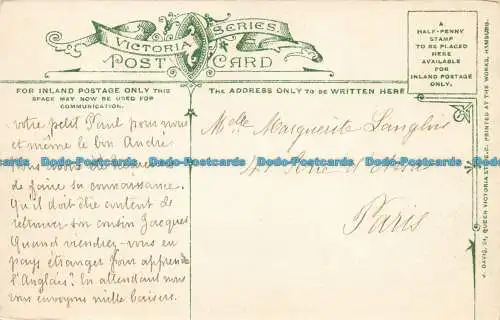 VICTORIA SERIES.
POST CARD
A
HALF-PENNY
STAMP
TO BE PLACED
HERE
AVAILABLE
FOR
INLAND POSTAGE
ONLY.
FOR INLAND POSTAGE ONLY THIS
SPACE MAY NOW BE USED FOR
COMMUNICATION.
THE ADDRESS ONLY TO BE WRITTEN HERE
votre petit Paul pour nous
et même le bon André
de faire sa connaissance.
Qu'il doit être content de
retrouver son cousin Jacques
Quand viendrez-vous en
pays étranger pour apprendre
l'Anglais? En attendant nous
vous envoyons mille baisers.
Melle Marguerite Langlois
Paris
DAVIS, QUEEN VICTORIA ST. E.C. PRINTED AT THE WORKS, HAMBURG.
Dado-Postcards.com Dado-Postcards.com Dado-Postcards.com